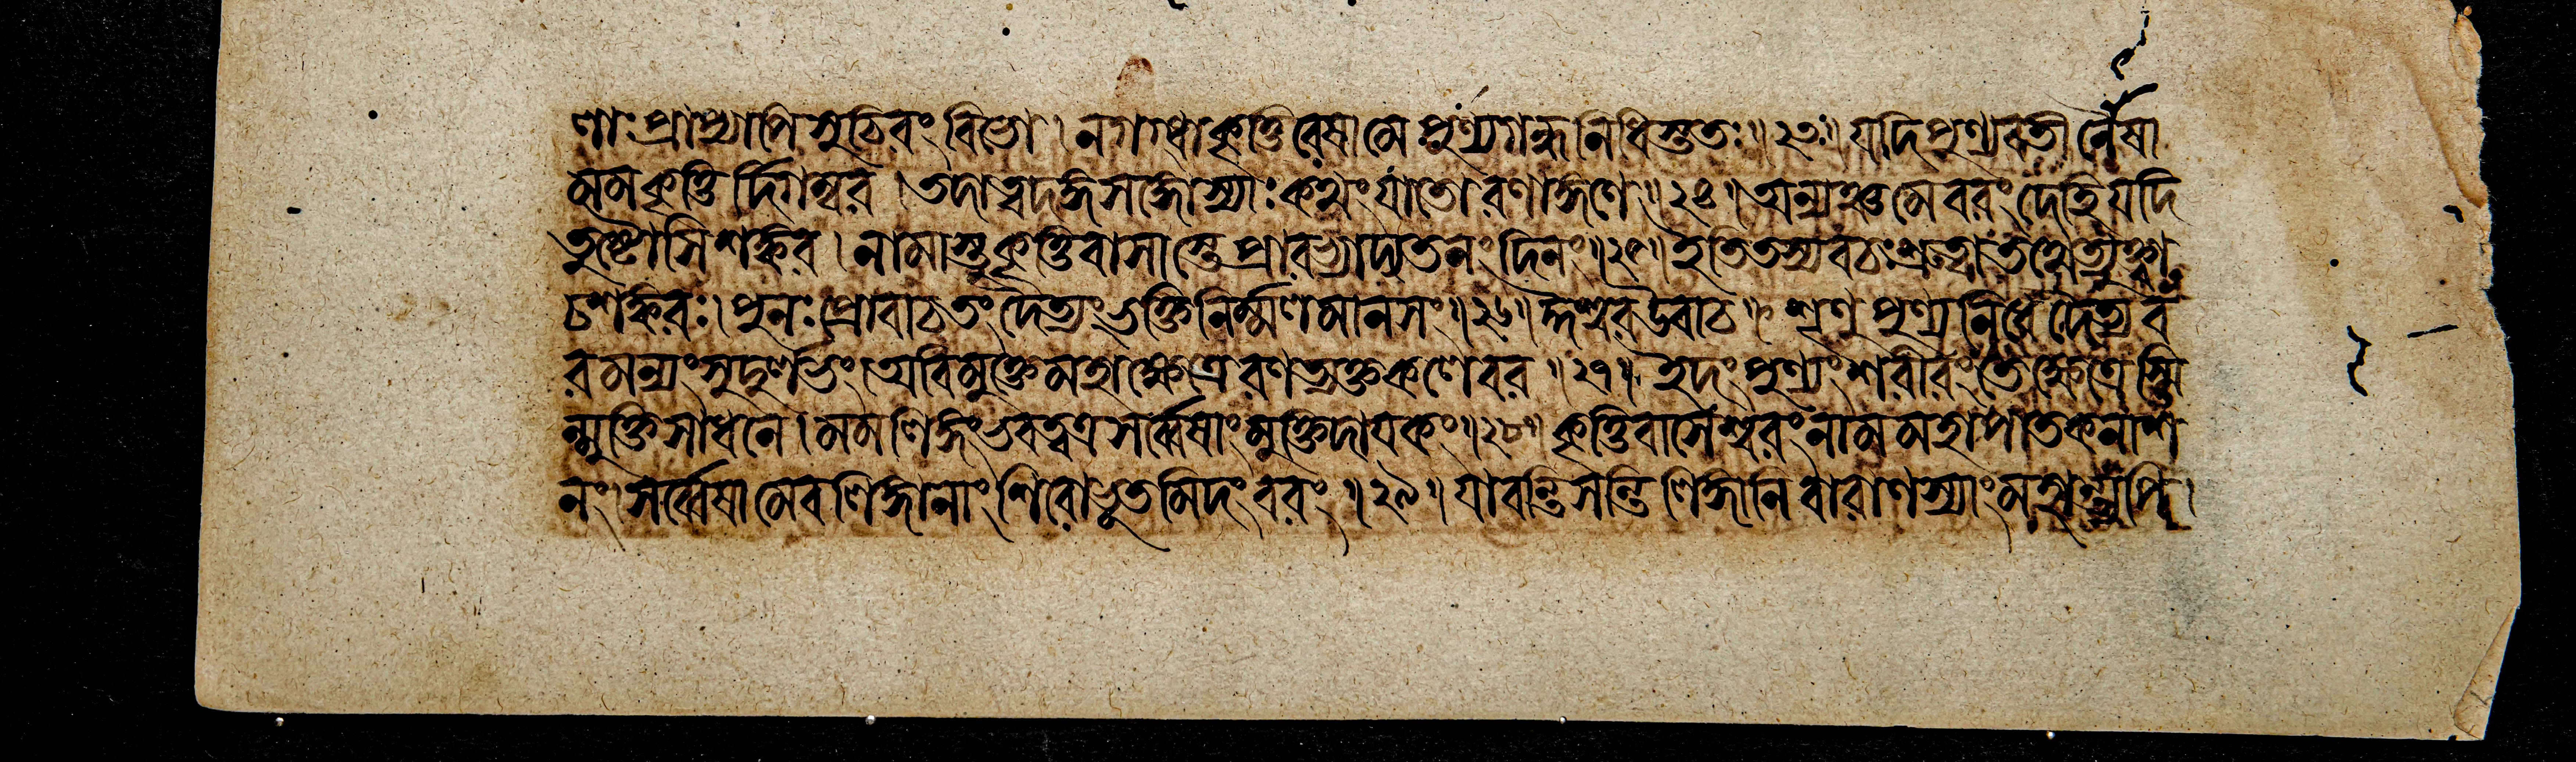 লাঃ প্রাপ্যাপি সুচিরং বিভো । ন দগ্ধা কৃত্তিরেষা মে পুণ্যগন্ধনিধিস্ততঃ ॥ ২৩ ॥ যদি পুণ্যবতী নৈষা
মম কৃত্তির্দিগম্বর । তদা ত্বদঙ্গসঙ্গোস্যাঃ কথং যাতো রণাঙ্গণে ॥ ২৪ ॥ অন্যঞ্চ মে বরং দেহি যদি
তুষ্টোসি শঙ্কর । নামাস্তু কৃত্তিবাসাস্তে প্রারভ্যাদ্যতনং দিনং ॥ ২৫ ॥ ইতি তস্য বচঃ শ্রুত্বা তথেত্যুক্ত্বা
চ শঙ্করঃ । পুনঃ প্রোবাচ তং দৈত্যং ভক্তিনির্ম্মলমানসং ॥ ২৬ ॥ ঈশ্বর উবাচ ॥ শৃণু পুণ্যনিধে দৈত্য ব
রমন্যং সুদুর্লভং । অবিমুক্তে মহাক্ষেত্রে রণত্যক্তকলেবর ॥ ২৭ ॥ ইদং পুণ্যং শরীরং তে ক্ষেত্রেস্মি
ন্মুক্তিসাধনে । মম লিঙ্গং ভবত্বত্র সর্ব্বেষাং মুক্তিদায়কং ॥ ২৮ ॥ কৃত্তিবাসেশ্বরং নাম মহাপাতকনাশ
নং । সর্ব্বেষামেব লিঙ্গানাং শিরোভূতমিদং বরং ॥ ২৯ ॥ যাবন্তি সন্তি লিঙ্গানি বারাণস্যাং মহান্ত্যপি ।